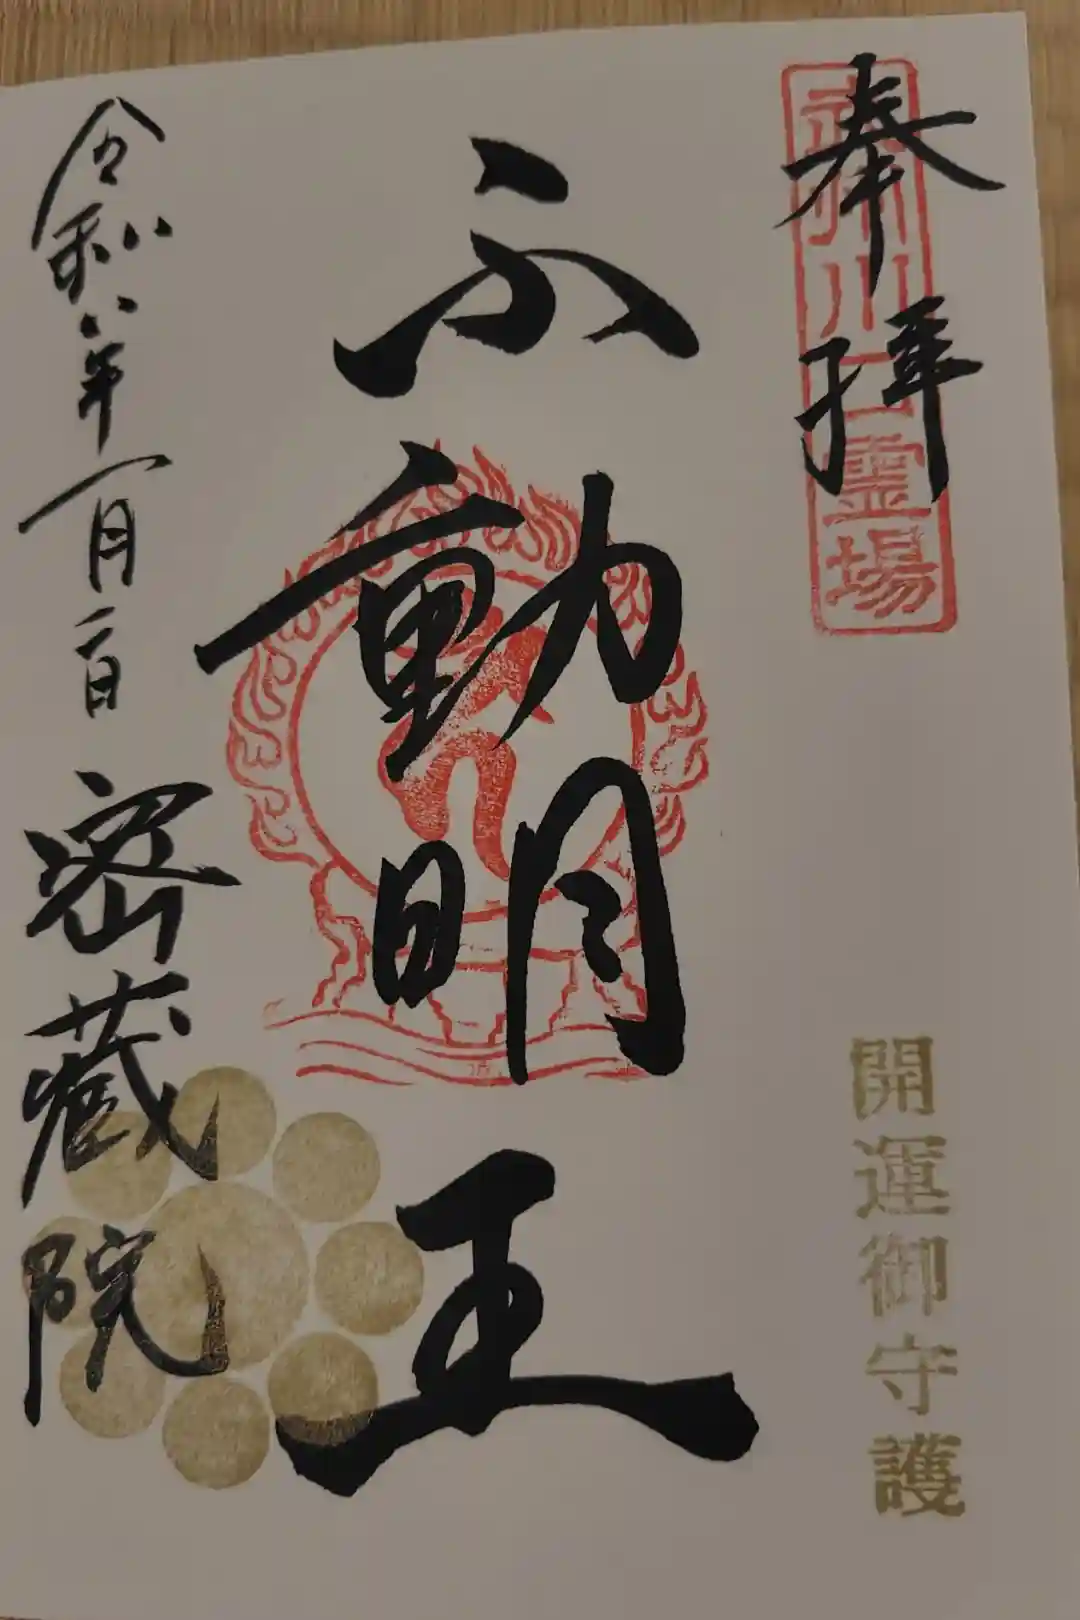 奉拝
武州川口霊場
開運御守護
不動明王
令和八年一月二日
密蔵院